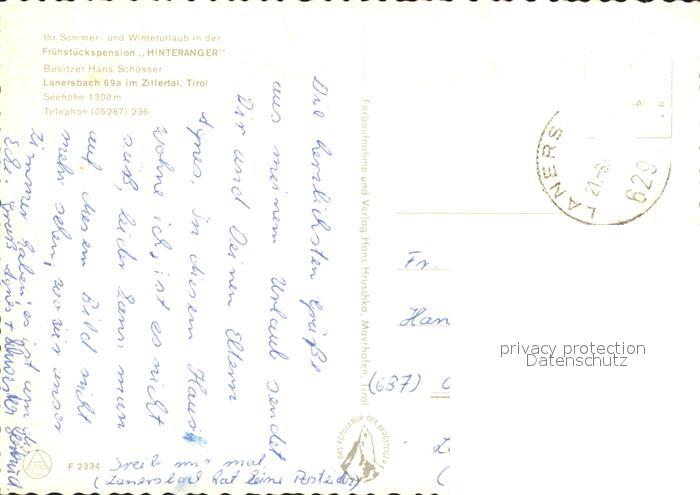 Ihr Sommer- und Winterurlaub in der
Frühstückspension „HINTERANGER"
Besitzer Hans Schösser
Lanersbach 69a im Zillertal, Tirol
Seehöhe 1300 m
Telephon (05287) 236
Die herzlichsten Grüße
aus meinem Urlaub sendet
Dir und Deinen Eltern
Agnes. In diesem Haus
wohne ich, ist es nicht
süß, leider kann man
auf diesem Bild nicht
mehr sehen, wo wir unser
Zimmer haben, es ist am
Gruß Agnes +
Farbaufnahme und Verlag Hans Hruschka, Mayrhofen, Tirol
LANERS
21.-8.
629
Fr.
Han
(637)
privacy protection
Datenschutz
DAS FOTOLABOR DER BERGSTEIGER
F 2334
Sreib mir mal.
(Lanersbach hat keine Postleitz)